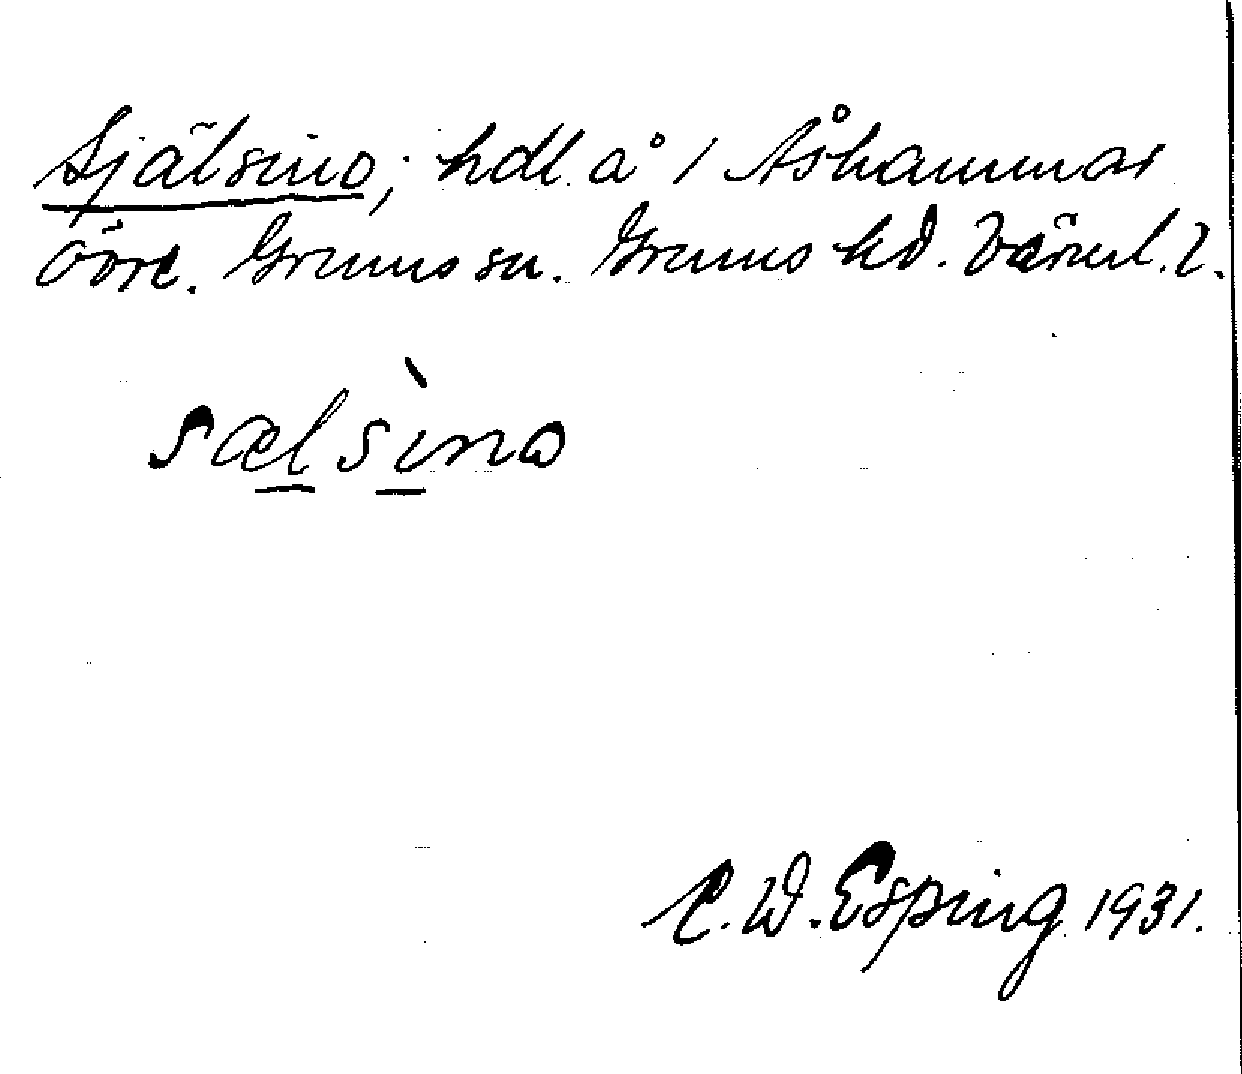 Själsino; hdl. å 1 Åshammar
övre. Grums sn. Grums hd. Värml. l.
sælsìno
C. W. Esping 1931.